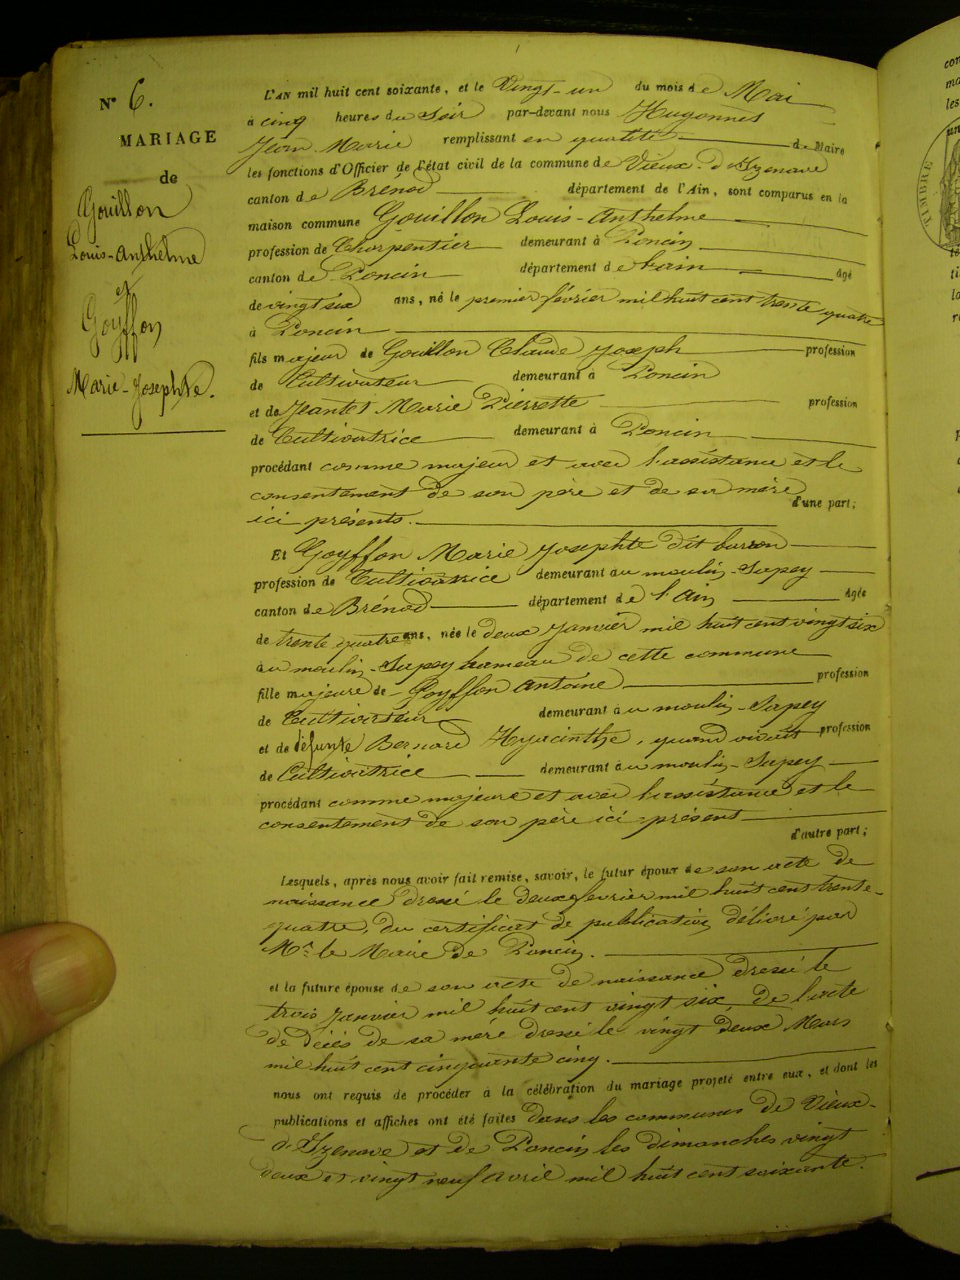 N° 6.
MARIAGE
de
Gouillon
Louis-Anthelme
et
Goyffon
Marie-Josephte.
L'AN mil huit cent soixante, et le Vingt-un du mois de Mai
à cinq heures du Soir par-devant nous Hugonnet
Jean Marie remplissant en qualité de Maire
les fonctions d'Officier de l'état civil de la commune de Vieux-d'Izenave
canton de Brénod département de l'Ain, sont comparus en la
maison commune Gouillon Louis-Anthelme
profession de Charpentier demeurant à Poncin
canton de Poncin département de l'ain âgé
de vingt six ans, né le premier février mil huit cent trente quatre
à Poncin
fils majeur de Gouillon Claude Joseph profession
de Cultivateur demeurant à Poncin
et de Jeantet Marie Pierrette profession
de Cultivatrice demeurant à Poncin
procédant comme majeur et avec l'assistance et le
consentement de son père et de sa mère
ici présents. d'une part;
Et Goyffon Marie Josephte dit buron
profession de Cultivatrice demeurant au moulin-Sapey
canton de Brénod département de l'Ain âgée
de trente quatre ans, née le deux Janvier mil huit cent vingt six
au moulin-Sapey hameau de cette commune
fille majeure de Goyffon Antoine profession
de Cultivateur demeurant au moulin-Sapey
et de défunte Bernard Hyacinthe, quand vivait profession
de Cultivatrice demeurant au moulin-Sapey
procédant comme majeure et avec l'assistance et le
consentement de son père ici présent
d'autre part;
Lesquels, après nous avoir fait remise, savoir, le futur époux de son acte de
naissance dressé le deux fevrier mil huit cent trente-
quatre, du certificat de publication délivré par
Mr. le Maire de Poncin.
et la future épouse de son acte de naissance dressé le
trois Janvier mil huit cent vingt six, de l'acte
de décès de sa mère dressé le vingt deux Mars
mil huit cent cinquante cinq.
nous ont requis de procéder à la célébration du mariage projeté entre eux, et dont les
publications et affiches ont été faites dans les communes de Vieux-
d'Izenave et de Poncin les dimanches vingt
deux et vingt neuf avril mil huit cent soixante.
TIMBRE